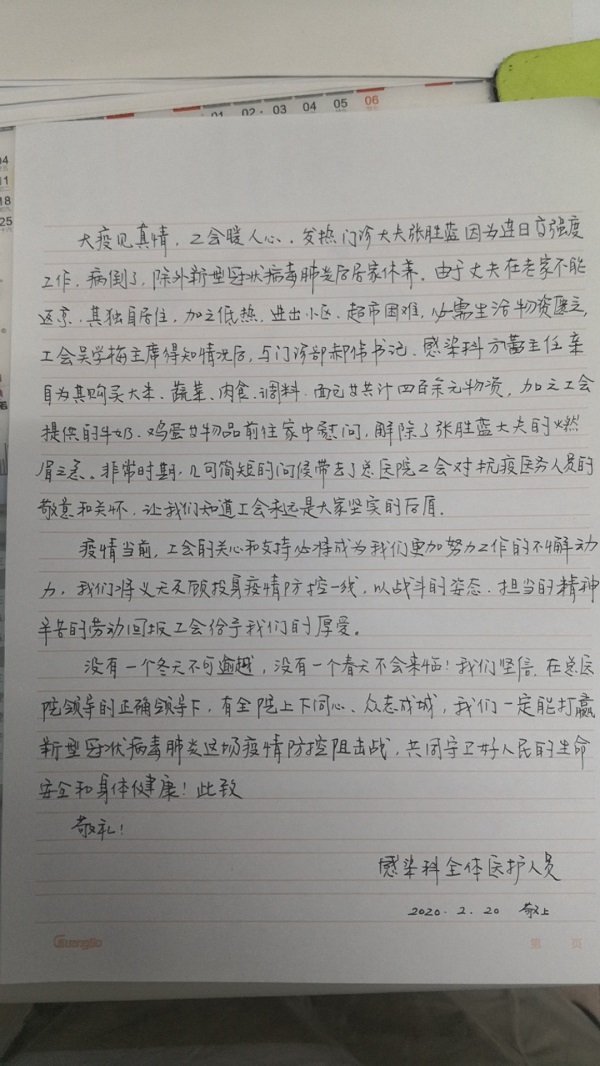 01 02 03 04 05 06
04
11
18
25
大疫见真情，工会暖人心。发热门诊大夫张胜蓝因为连日高强度
工作，病倒了，除外新型冠状病毒肺炎后居家休养。由于丈夫在老家不能
返京，其独自居住，加之低热，进出小区、超市困难，必需生活物资匮乏，
工会吴学梅主席得知情况后，与门诊部郝伟书记、感染科方蕾主任亲
自为其购买大米、蔬菜、肉食、调料、面包等共计四百余元物资，加之工会
提供的牛奶、鸡蛋等物品前往家中慰问，解除了张胜蓝大夫的燃
眉之急。非常时期，几句简短的问候带去了总医院工会对抗疫医务人员的
敬意和关怀，让我们知道工会永远是大家坚实的后盾。
疫情当前，工会的关心和支持必将成为我们更加努力工作的不懈动
力，我们将义无反顾投身疫情防控一线，以战斗的姿态、担当的精神
辛苦的劳动回报工会给予我们的厚爱。
没有一个冬天不可逾越，没有一个春天不会来临！我们坚信，在总医
院领导的正确领导下，有全院上下同心、众志成城，我们一定能打赢
新型冠状病毒肺炎这场疫情防控阻击战，共同守卫好人民的生命
安全和身体健康！此致
敬礼！
感染科全体医护人员
2020.2.20 敬上
Guangbo 第 页